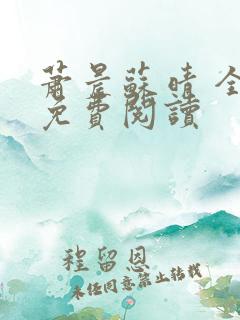 蕭晨蘇晴 全
免費閱讀
程留恩
未任同意禁止轉載